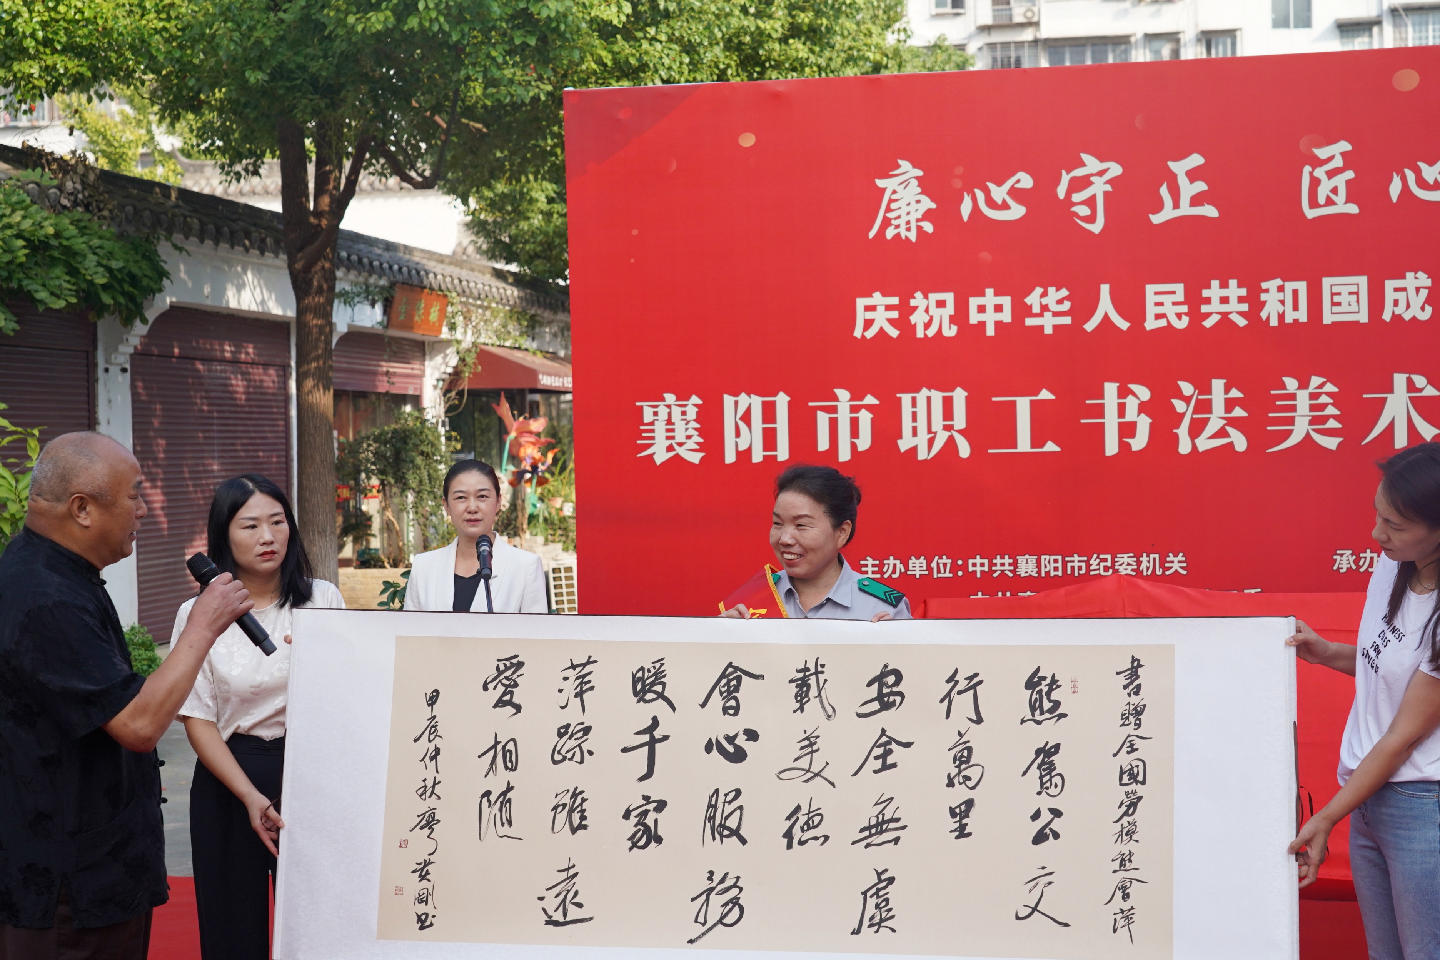 廉心守正 匠心
庆祝中华人民共和国成
襄阳市职工书法美术
主办单位:中共襄阳市纪委机关
承办
書贈全國勞模熊會萍
熊駕公交
行萬里
安全無虞
載美德
會心服務
暖千家
萍踪雖遠
愛相随
甲辰仲秋廖黄剛书